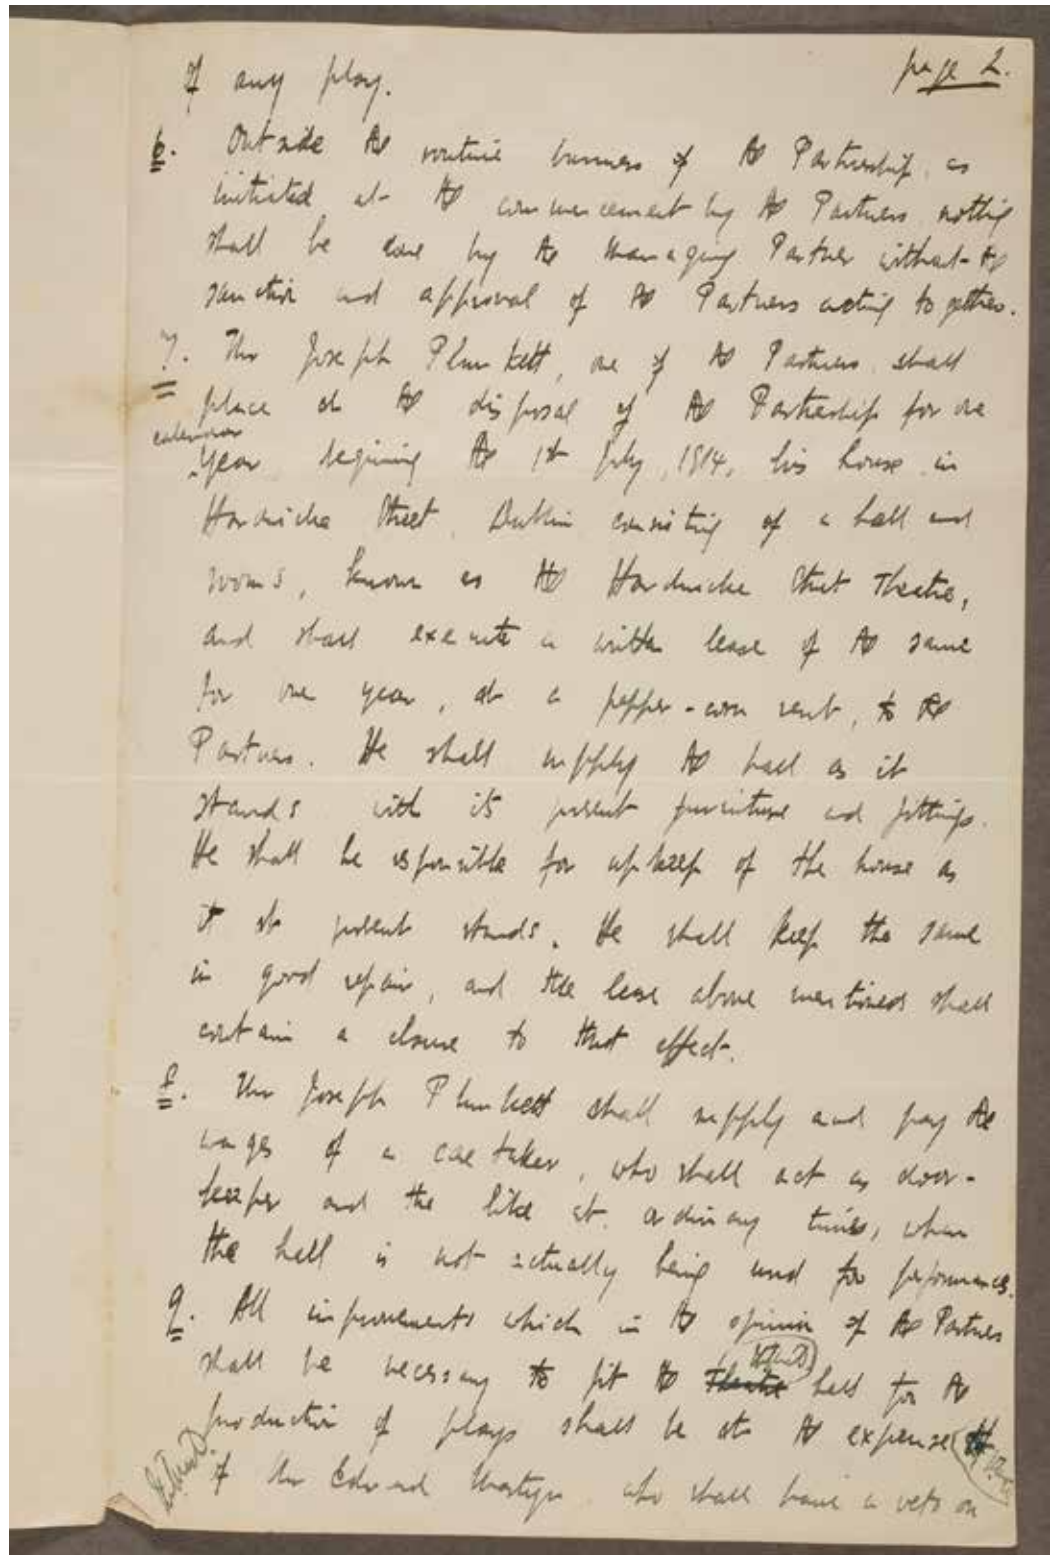 page 2.
of any play.
6. Outside the routine business of the Partnership, as
initiated at the commencement by the Partners nothing
shall be done by the Managing Partner without the
sanction and approval of the Partners acting together.
7. The Joseph Plunkett, one of the Partners, shall
place at the disposal of the Partnership for one
calendar
year begining the 1st July, 1914, his house in
Hardwicke Street, Dublin consisting of a hall and
rooms, known as the Hardwicke Street Theatre,
and shall execute a written lease of the same
for one year, at a pepper-corn rent, to the
Partners. He shall supply the hall as it
stands with its present furniture and fittings.
He shall be responsible for upkeep of the house as
it at present stands. He shall keep the same
in good repair, and the lease above mentioned shall
contain a clause to that effect.
8. The Joseph Plunkett shall supply and pay the
wages of a caretaker, who shall act as door-
keeper and the like at ordinary times, when
the hall is not actually being used for performances.
9. All improvements which in the opinion of the Partners
shall be necessary to fit the Theatre hall for the
production of plays shall be at the expense
of Mr Edward Martyn who shall have a veto on